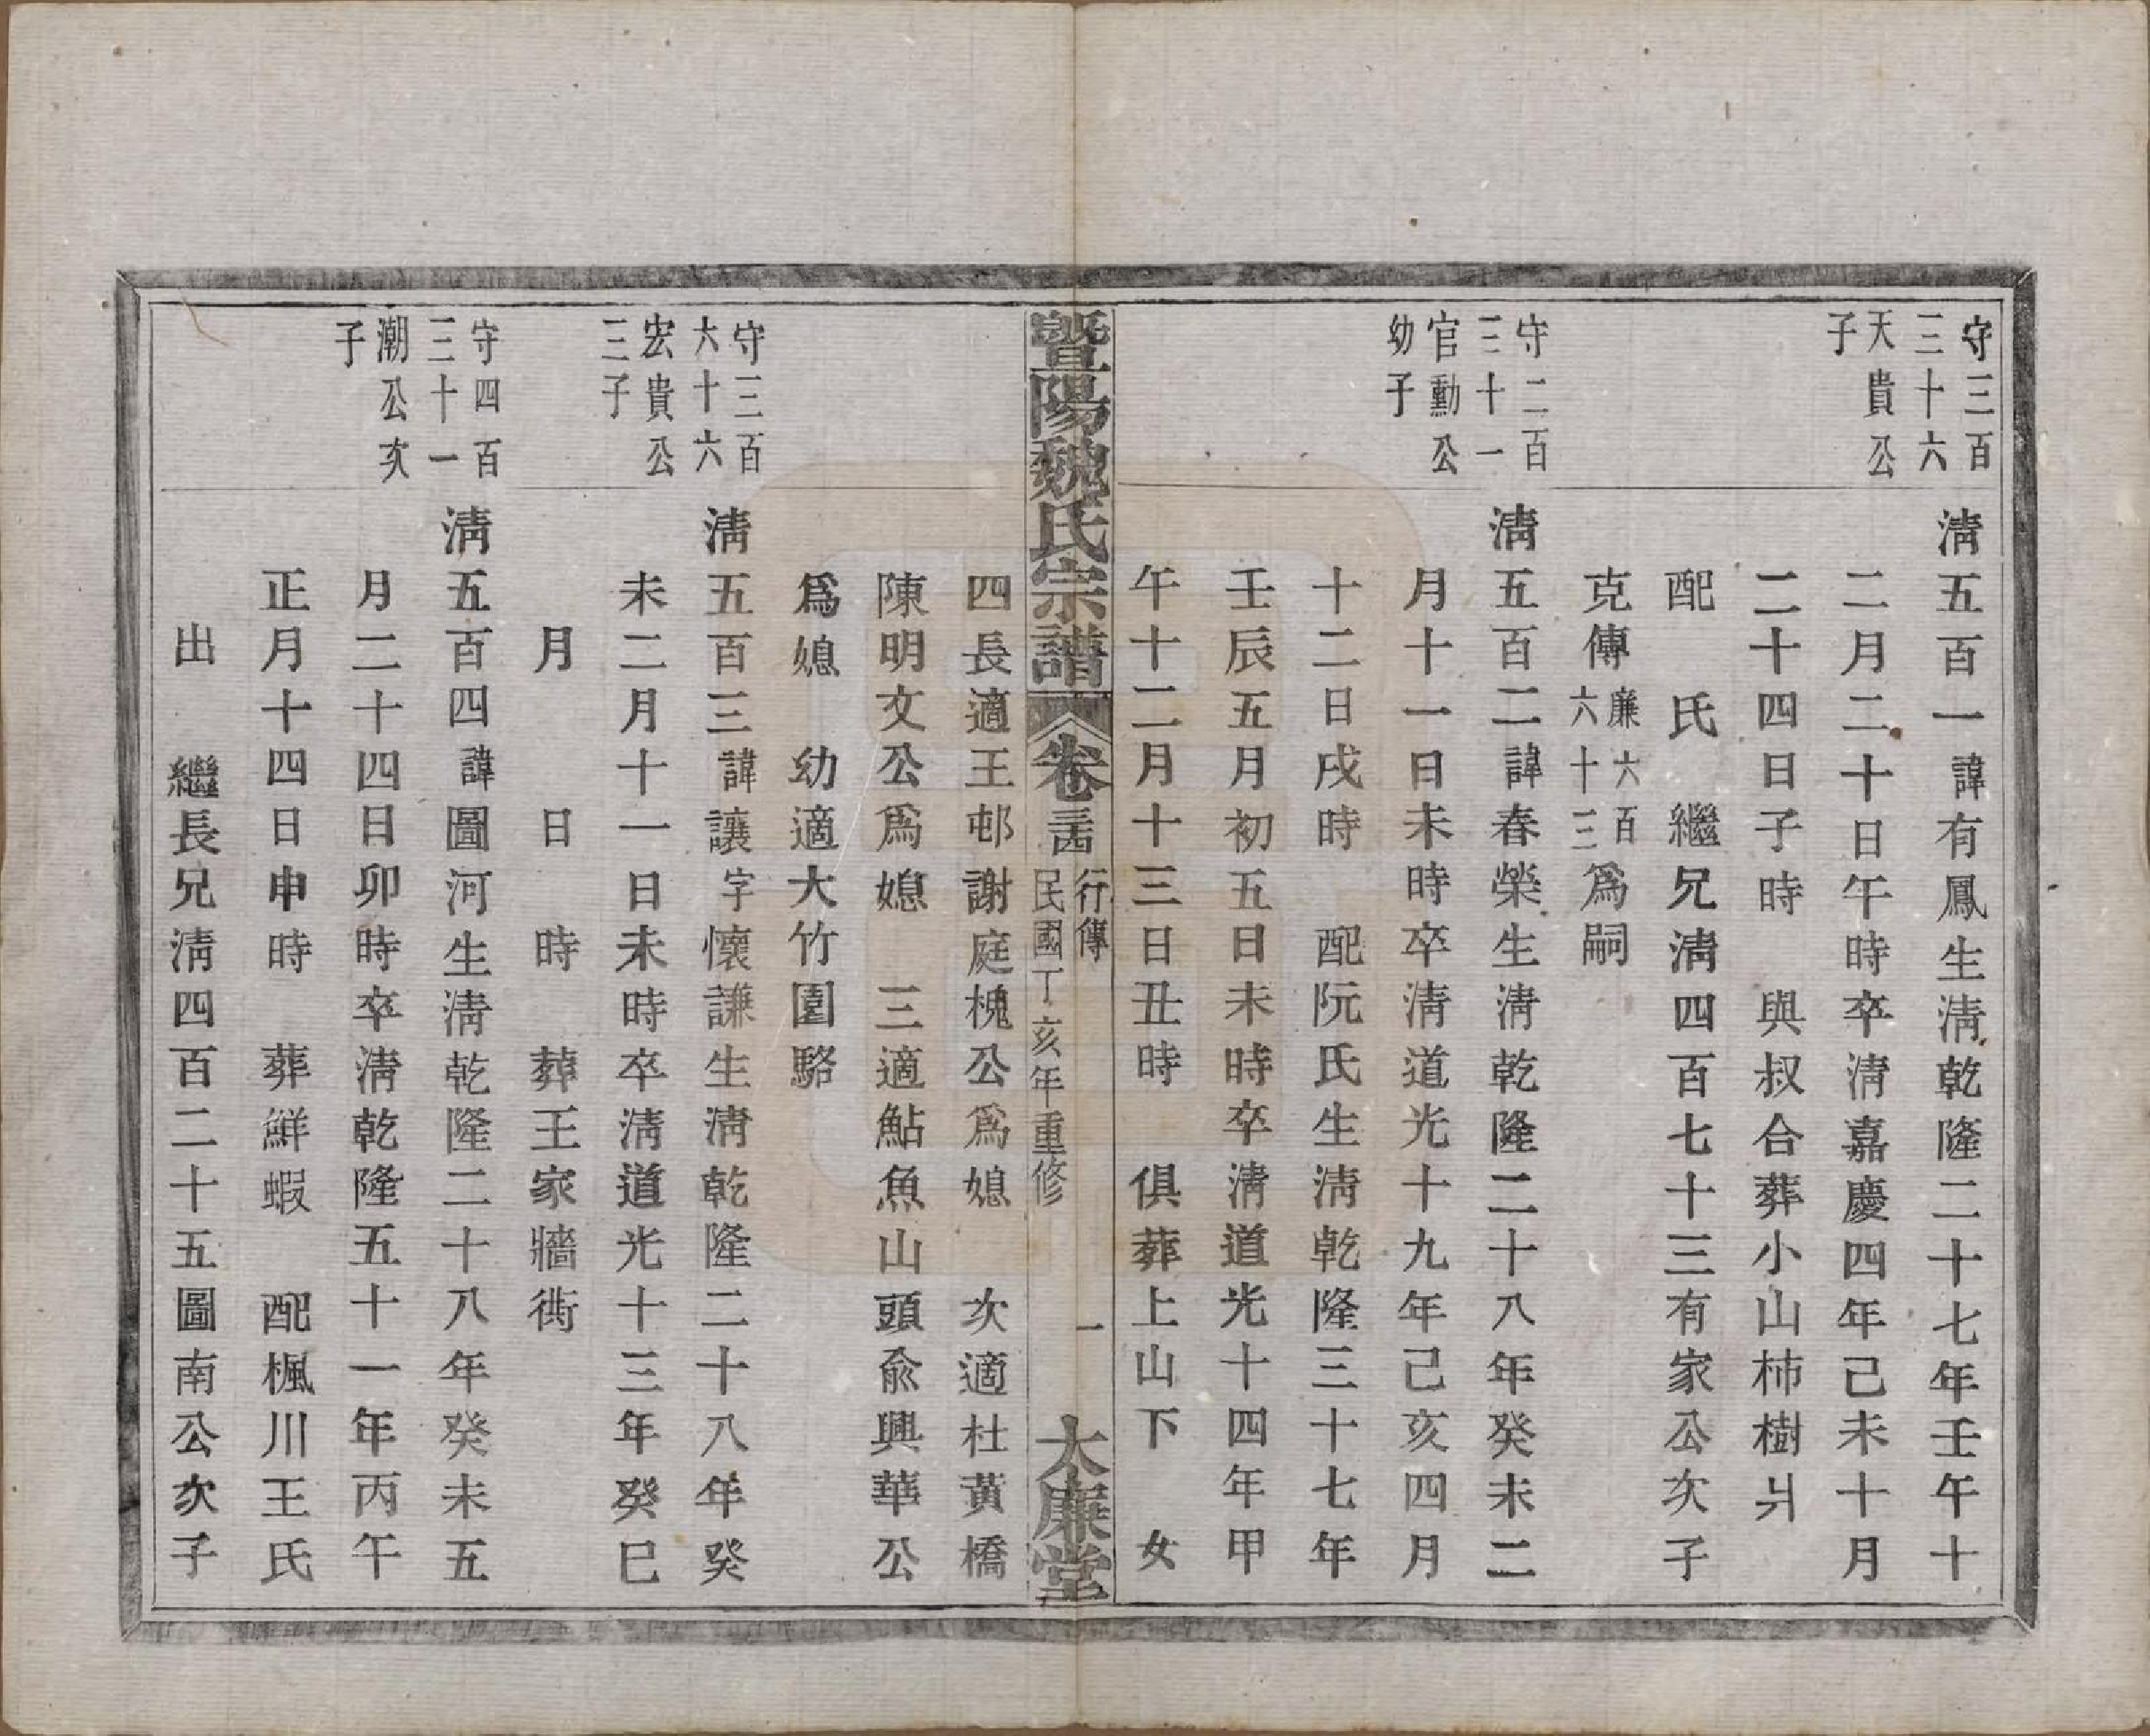 守三百
三十六
天貴公
子
清五百一諱有鳳生清乾隆二十七年壬午十
二月二十日午時卒清嘉慶四年己未十月
二十四日子時　與叔合葬小山柿樹爿
配　氏　繼兄清四百七十三有家公次子
克傳廉六百六十三爲嗣
守二百
三十一
官勳公
幼子
清五百二諱春榮生清乾隆二十八年癸未二
月十一日未時卒清道光十九年己亥四月
十二日戌時　配阮氏生清乾隆三十七年
壬辰五月初五日未時卒清道光十四年甲
午十二月十三日丑時　俱葬上山下　女
暨陽魏氏宗譜　卷三四　行傳　民國丁亥年重修　一　大廉堂
四長適王邨謝庭槐公爲媳　次適杜黃橋
陳明文公爲媳　三適鮎魚山頭兪興華公
爲媳　幼適大竹園駱
守三百
六十六
宏貴公
三子
清五百三諱讓字懷謙生清乾隆二十八年癸
未二月十一日未時卒清道光十三年癸巳
月　日　時　葬王家牆衖
守四百
三十一
潮公次
子
清五百四諱圖河生清乾隆二十八年癸未五
月二十四日卯時卒清乾隆五十一年丙午
正月十四日申時　葬鮮蝦　配楓川王氏
出　繼長兄清四百二十五圖南公次子